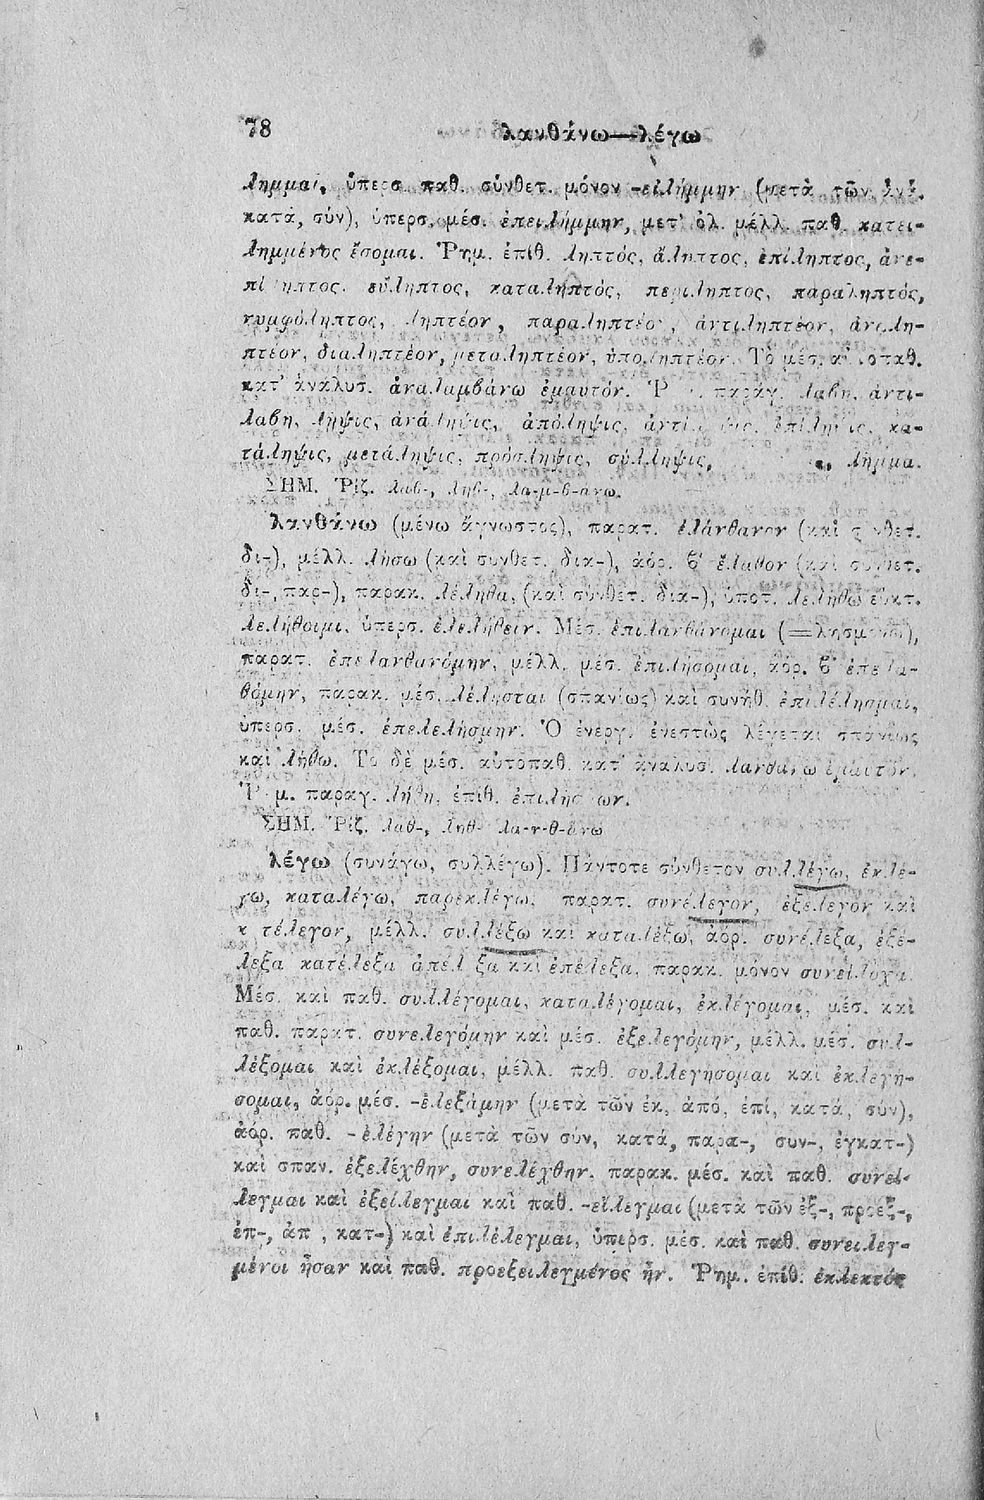 78
λανθάνω—λέγω
λημμαι, ὑπερσ. παθ. σύνθετ. μόνον -ειλήμμην (μετὰ τῶν
κατά, σύν), ὑπερσ. μέσ. ἐπειλήμμην, μετ' ὀλ. μέλλ. παθ. κατει-
λημμένος ἔσομαι. Ῥημ. ἐπίθ. ληπτός, ἄληπτος, ἐπίληπτος, ἀνε-
πίληπτος. εὔληπτος, καταληπτός, περιληπτος, παραληπτός,
νυμφόληπτος, ληπτέον, παραληπτέον, ἀντιληπτέον, ἀναλη-
πτέον, διαληπτέον, μεταληπτέον, ὑποληπτέον. Τὸ μέσ. αὐτοπαθ.
κατ' ἀνάλυσ. ἀναλαμβάνω ἐμαυτόν. παράγ. λαβη, ἀντι-
λαβη, λῆψις, ἀνάληψις, ἀπόληψις, ἐπίληψις, κα-
τάληψις, μετάληψις, πρόσληψις, σύλληψις, λῆμμα.
ΣΗΜ. Ῥίζ. λαβ-, ληβ-, λα-μ-β-άνω.
λανθάνω (μένω ἄγνωστος), παρατ. ἐλάνθανον (καὶ συνθετ.
δι-), μέλλ. λήσω (καὶ συνθετ. δια-), ἀόρ. β' ἔλαθον (καὶ συνθετ.
δι-, παρ-), παρακ. λέληθα, (καὶ συνθέτ. δια-), ὑποτ. λελήθω εὐκτ.
λελήθοιμι, ὑπερσ. ἐλελήθειν. Μέσ. ἐπιλανθάνομαι (=λησμονῶ),
παρατ. ἐπελανθανόμην, μέλλ. μέσ. ἐπιλήσομαι, ἀόρ. β' ἐπελα-
θόμην, παρακ. μέσ. λέλησται (σπανίως) καὶ συνήθ. ἐπιλέλησμαι,
ὑπερσ. μέσ. ἐπελελήσμην. Ὁ ἐνεργ. ἐνεστὼς λέγεται σπανίως
καὶ λήθω. Τὸ δὲ μέσ. αὐτοπαθ. κατ' ἀνάλυσ. λανθάνω ἐμαυτόν.
Ῥημ. παραγ. λήθη, ἐπίθ. ἐπιλήσμων.
ΣΗΜ. Ῥίζ. λαθ-, ληθ- λα-ν-θ-άνω
λέγω (συνάγω, συλλέγω). Πάντοτε σύνθετον συλλέγω, ἐκλέ-
γω, καταλέγω, παρεκλέγω, παρατ. συνέλεγον, ἐξέλεγον καὶ
κατέλεγον, μέλλ. συλλέξω καὶ καταλέξω, ἀόρ. συνέλεξα, ἐξέ-
λεξα κατέλεξα ἀπέλεξα καὶ ἐπέλεξα, παρακ. μόνον συνείλοχα.
Μέσ. καὶ παθ. συλλέγομαι, καταλέγομαι, ἐκλέγομαι, μέσ. καὶ
παθ. παρατ. συνελεγόμην καὶ μέσ. ἐξελεγόμην, μέλλ. μέσ. συλ-
λέξομαι καὶ ἐκλέξομαι, μέλλ. παθ. συλλεγήσομαι καὶ ἐκλεγή-
σομαι, ἀόρ. μέσ. -ἐλεξάμην (μετὰ τῶν ἐκ, ἀπό, ἐπί, κατά, σύν),
ἀόρ. παθ. -ἐλέγην (μετὰ τῶν σύν, κατά, παρα-, συν-, ἐγκατ-)
καὶ σπαν. ἐξελέχθην, συνελέχθην. παρακ. μέσ. καὶ παθ. συνεί-
λεγμαι καὶ ἐξείλεγμαι καὶ παθ. -είλεγμαι (μετὰ τῶν ἐξ-, προεξ-,
ἐπ-, ἀπ , κατ-) καὶ ἐπιλέλεγμαι, ὑπερσ. μέσ. καὶ παθ. συνειλεγ-
μένοι ἦσαν καὶ παθ. προεξειλεγμένος ἦν. Ῥημ. ἐπίθ. ἐκλεκτός